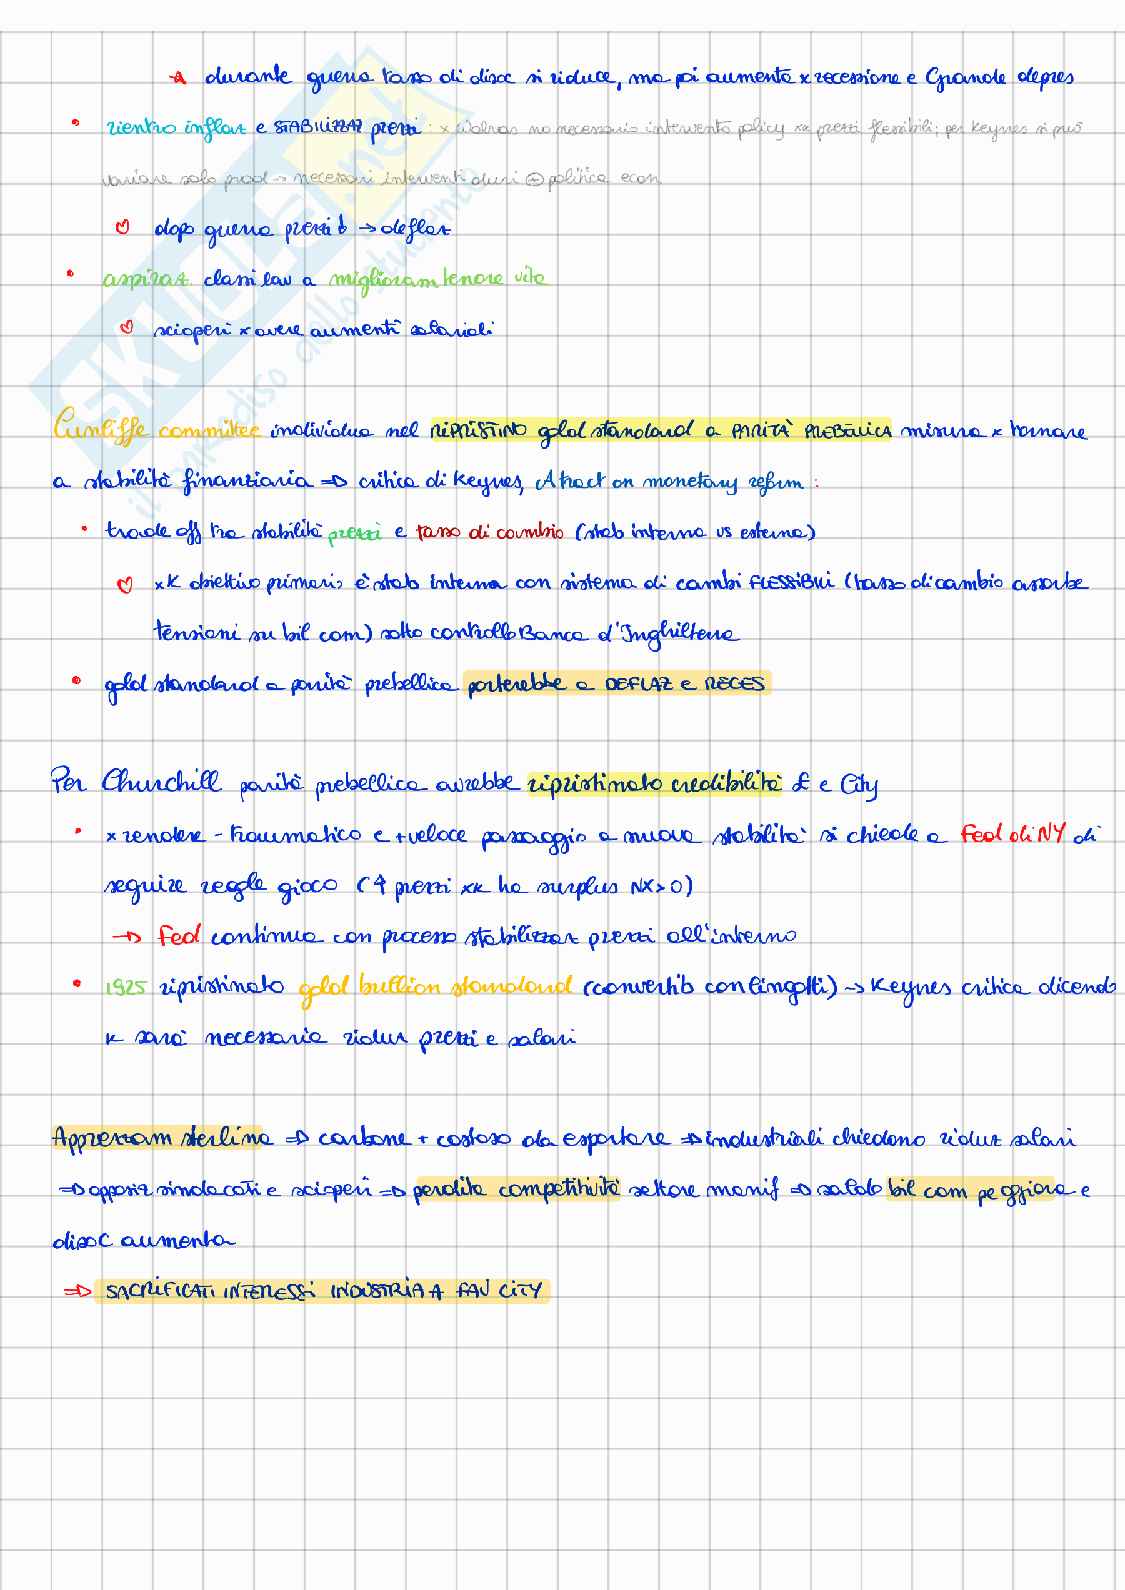 durante guerra tasso di disoc si riduce, ma poi aumenta x recessione e Grande depres
• rientro inflaz e STABILIZZAZ prezzi : x Walras no necessario intervento policy xk prezzi flessibili; per Keynes si può
variare solo prod → necessari interventi duri ⊕ politica econ
dopo guerra prezzi ↓ → deflaz
• aspiraz. classi lav a miglioram tenore vita
scioperi x avere aumenti salariali
Cunliffe commitee individua nel RIPRISTINO gold standard a PARITÀ PREBELLICA misura x tornare
a stabilità finanziaria ⇒ critica di Keynes, A tract on monetary reform :
• trade off tra stabilità prezzi e tasso di cambio (stab interna vs esterna)
xK obiettivo primario è stab interna con sistema di cambi FLESSIBILI (tasso di cambio assorbe
tensioni su bil com) sotto controllo Banca d'Inghilterra
• gold standard a parità prebellica porterebbe a DEFLAZ e RECES
Per Churchill parità prebellica avrebbe ripristinato credibilità £ e City
• x rendere - traumatico e + veloce passaggio a nuova stabilità si chiede a Fed di NY di
seguire regole gioco (↑ prezzi xk ha surplus NX>0)
→ Fed continua con processo stabilizzaz prezzi all'interno
• 1925 ripristinato gold bullion standard (convertib con lingotti) → Keynes critica dicendo
k sarà necessaria riduz prezzi e salari
Apprezzam sterlina ⇒ carbone + costoso da esportare ⇒ industriali chiedono riduz salari
⇒ opposiz sindacati e scioperi ⇒ perdita competitività settore manif ⇒ saldo bil com peggiora e
disoc aumenta
⇒ SACRIFICATI INTERESSI INDUSTRIA A FAV CITY
SKUOLA.net
il paradiso dello studente